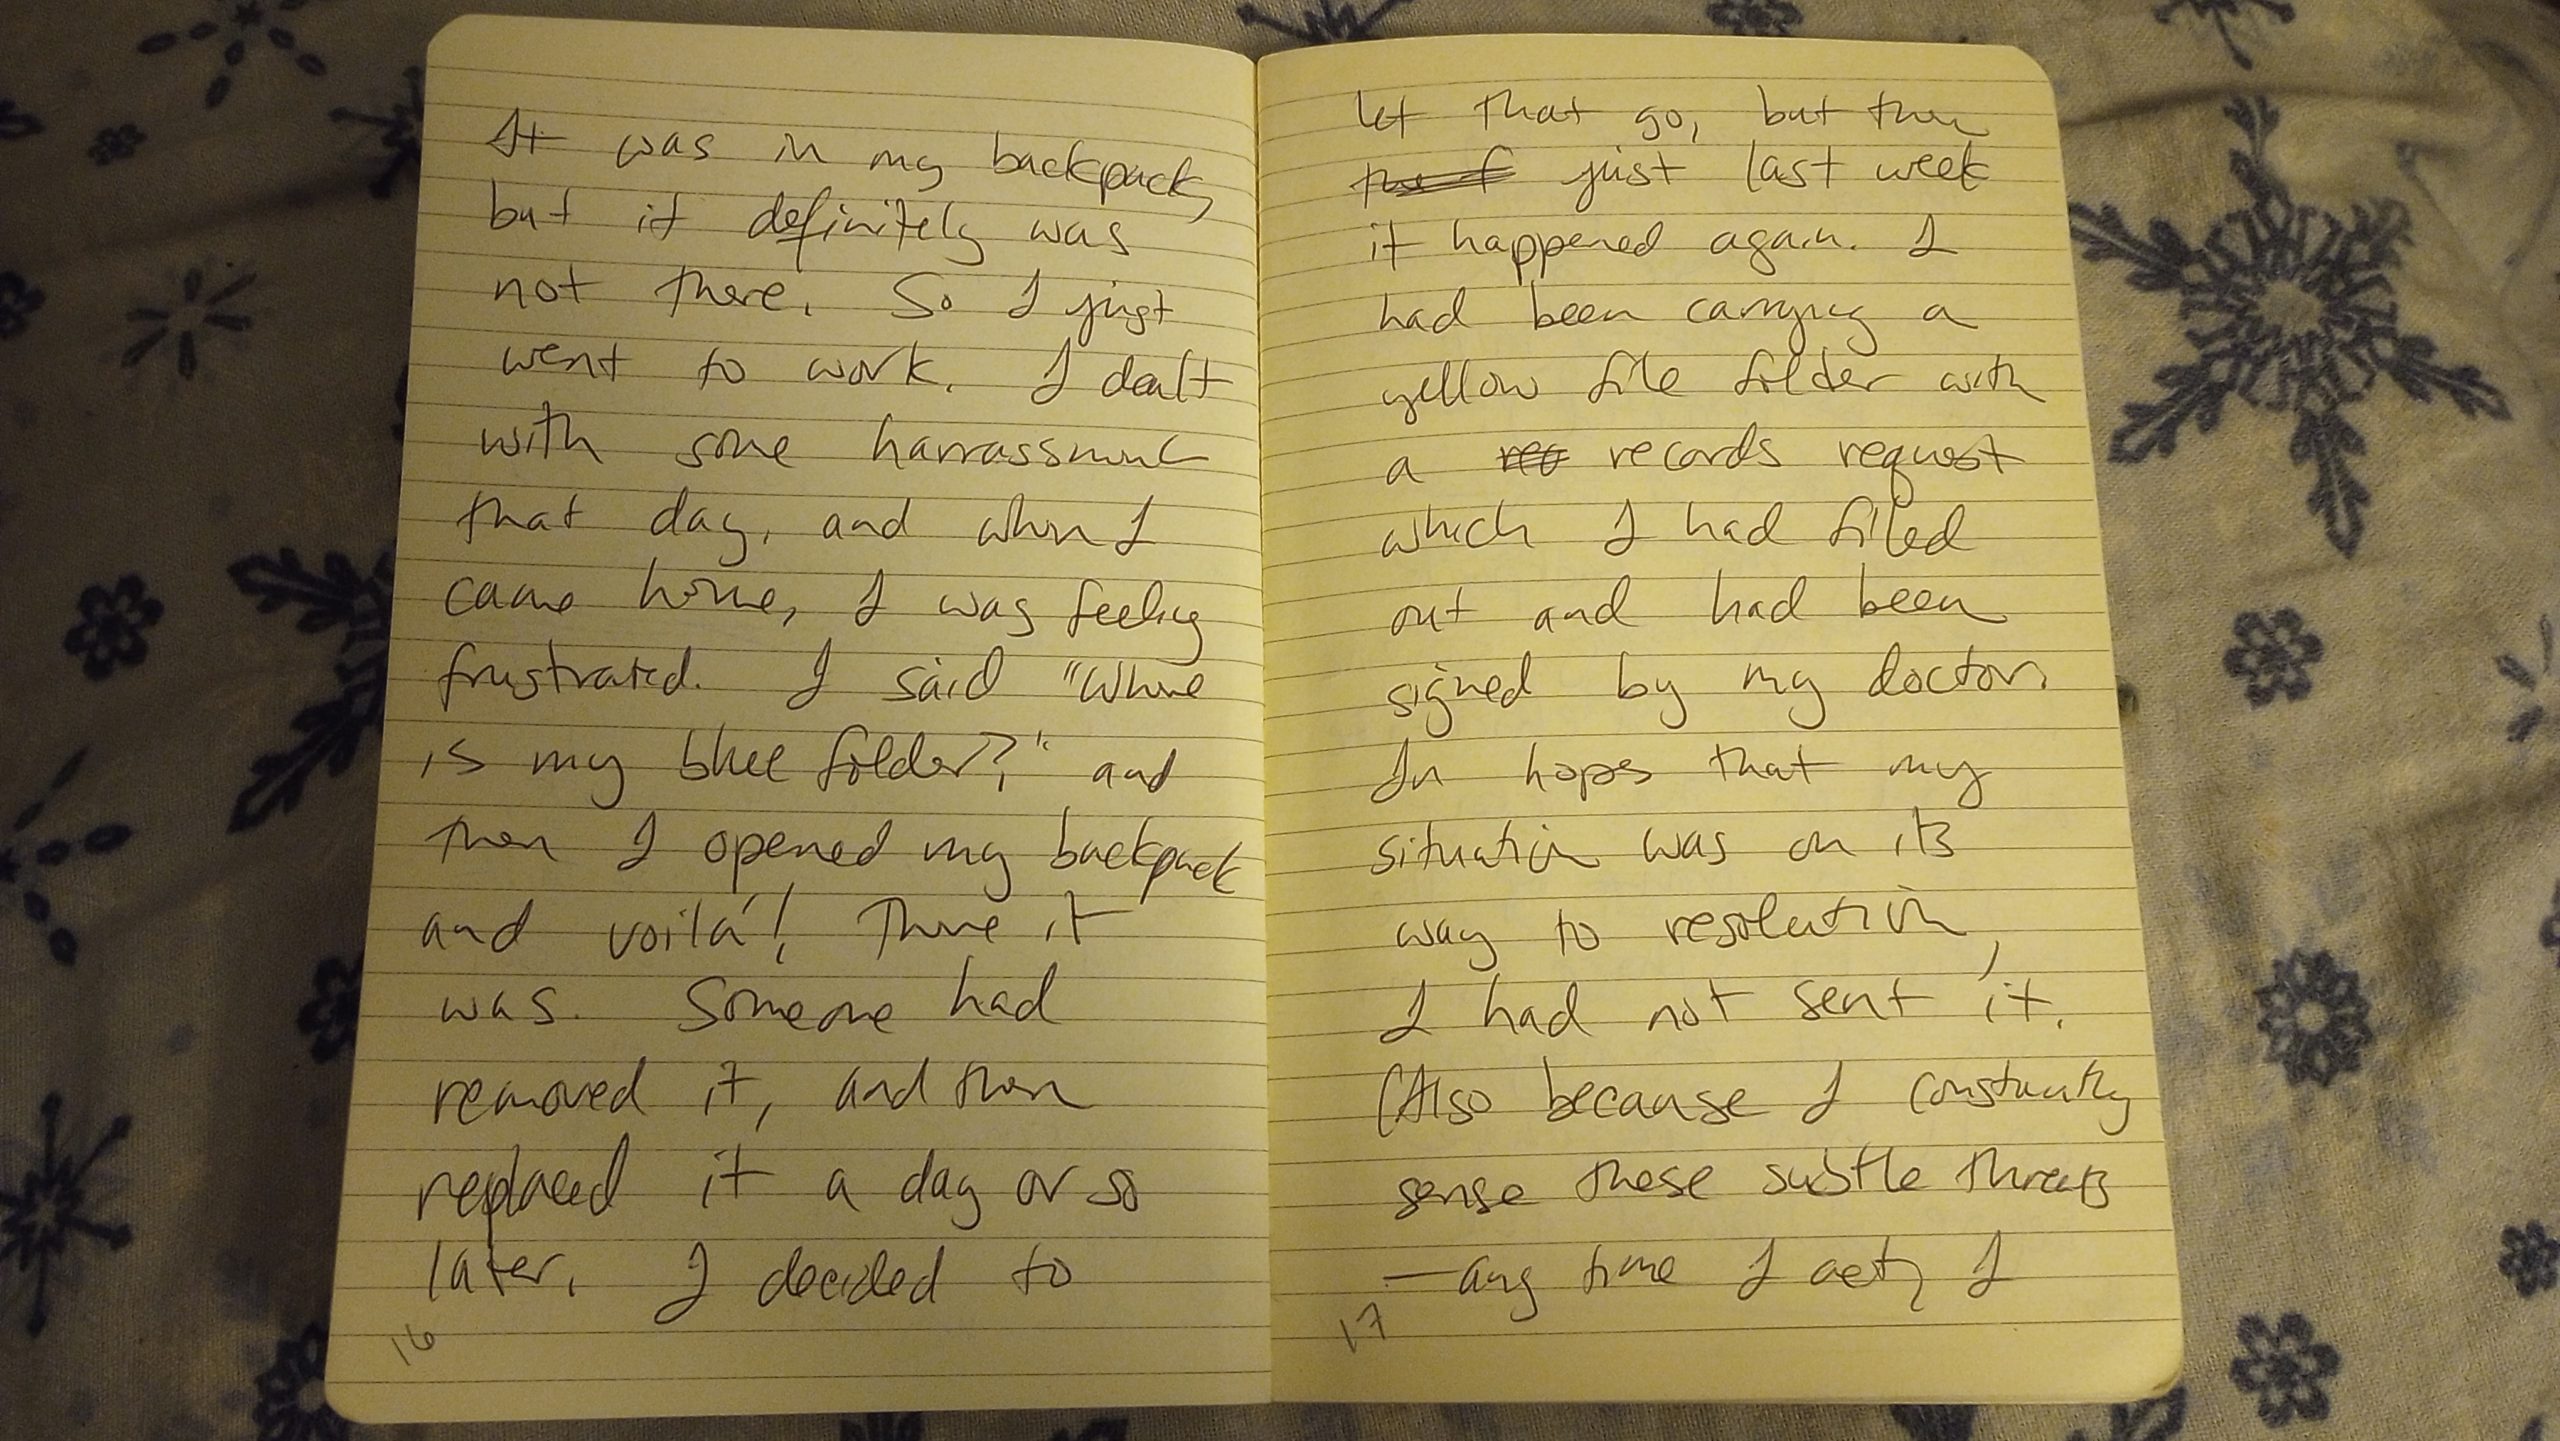 It was in my backpack,
but it definitely was
not there. So I just
went to work. I dealt
with some harrassment
that day, and when I
came home, I was feeling
frustrated. I said "Where
is my blue folder?" and
then I opened my backpack
and voilá! There it
was. Someone had
removed it, and then
replaced it a day or so
later. I decided to
16
let that go, but then
just last week
it happened again. I
had been carrying a
yellow file folder with
a records request
which I had filled
out and had been
signed by my doctor.
In hopes that my
situation was on its
way to resolution,
I had not sent it.
(Also because I constantly
sense these subtle threats
—any time I act, I
17